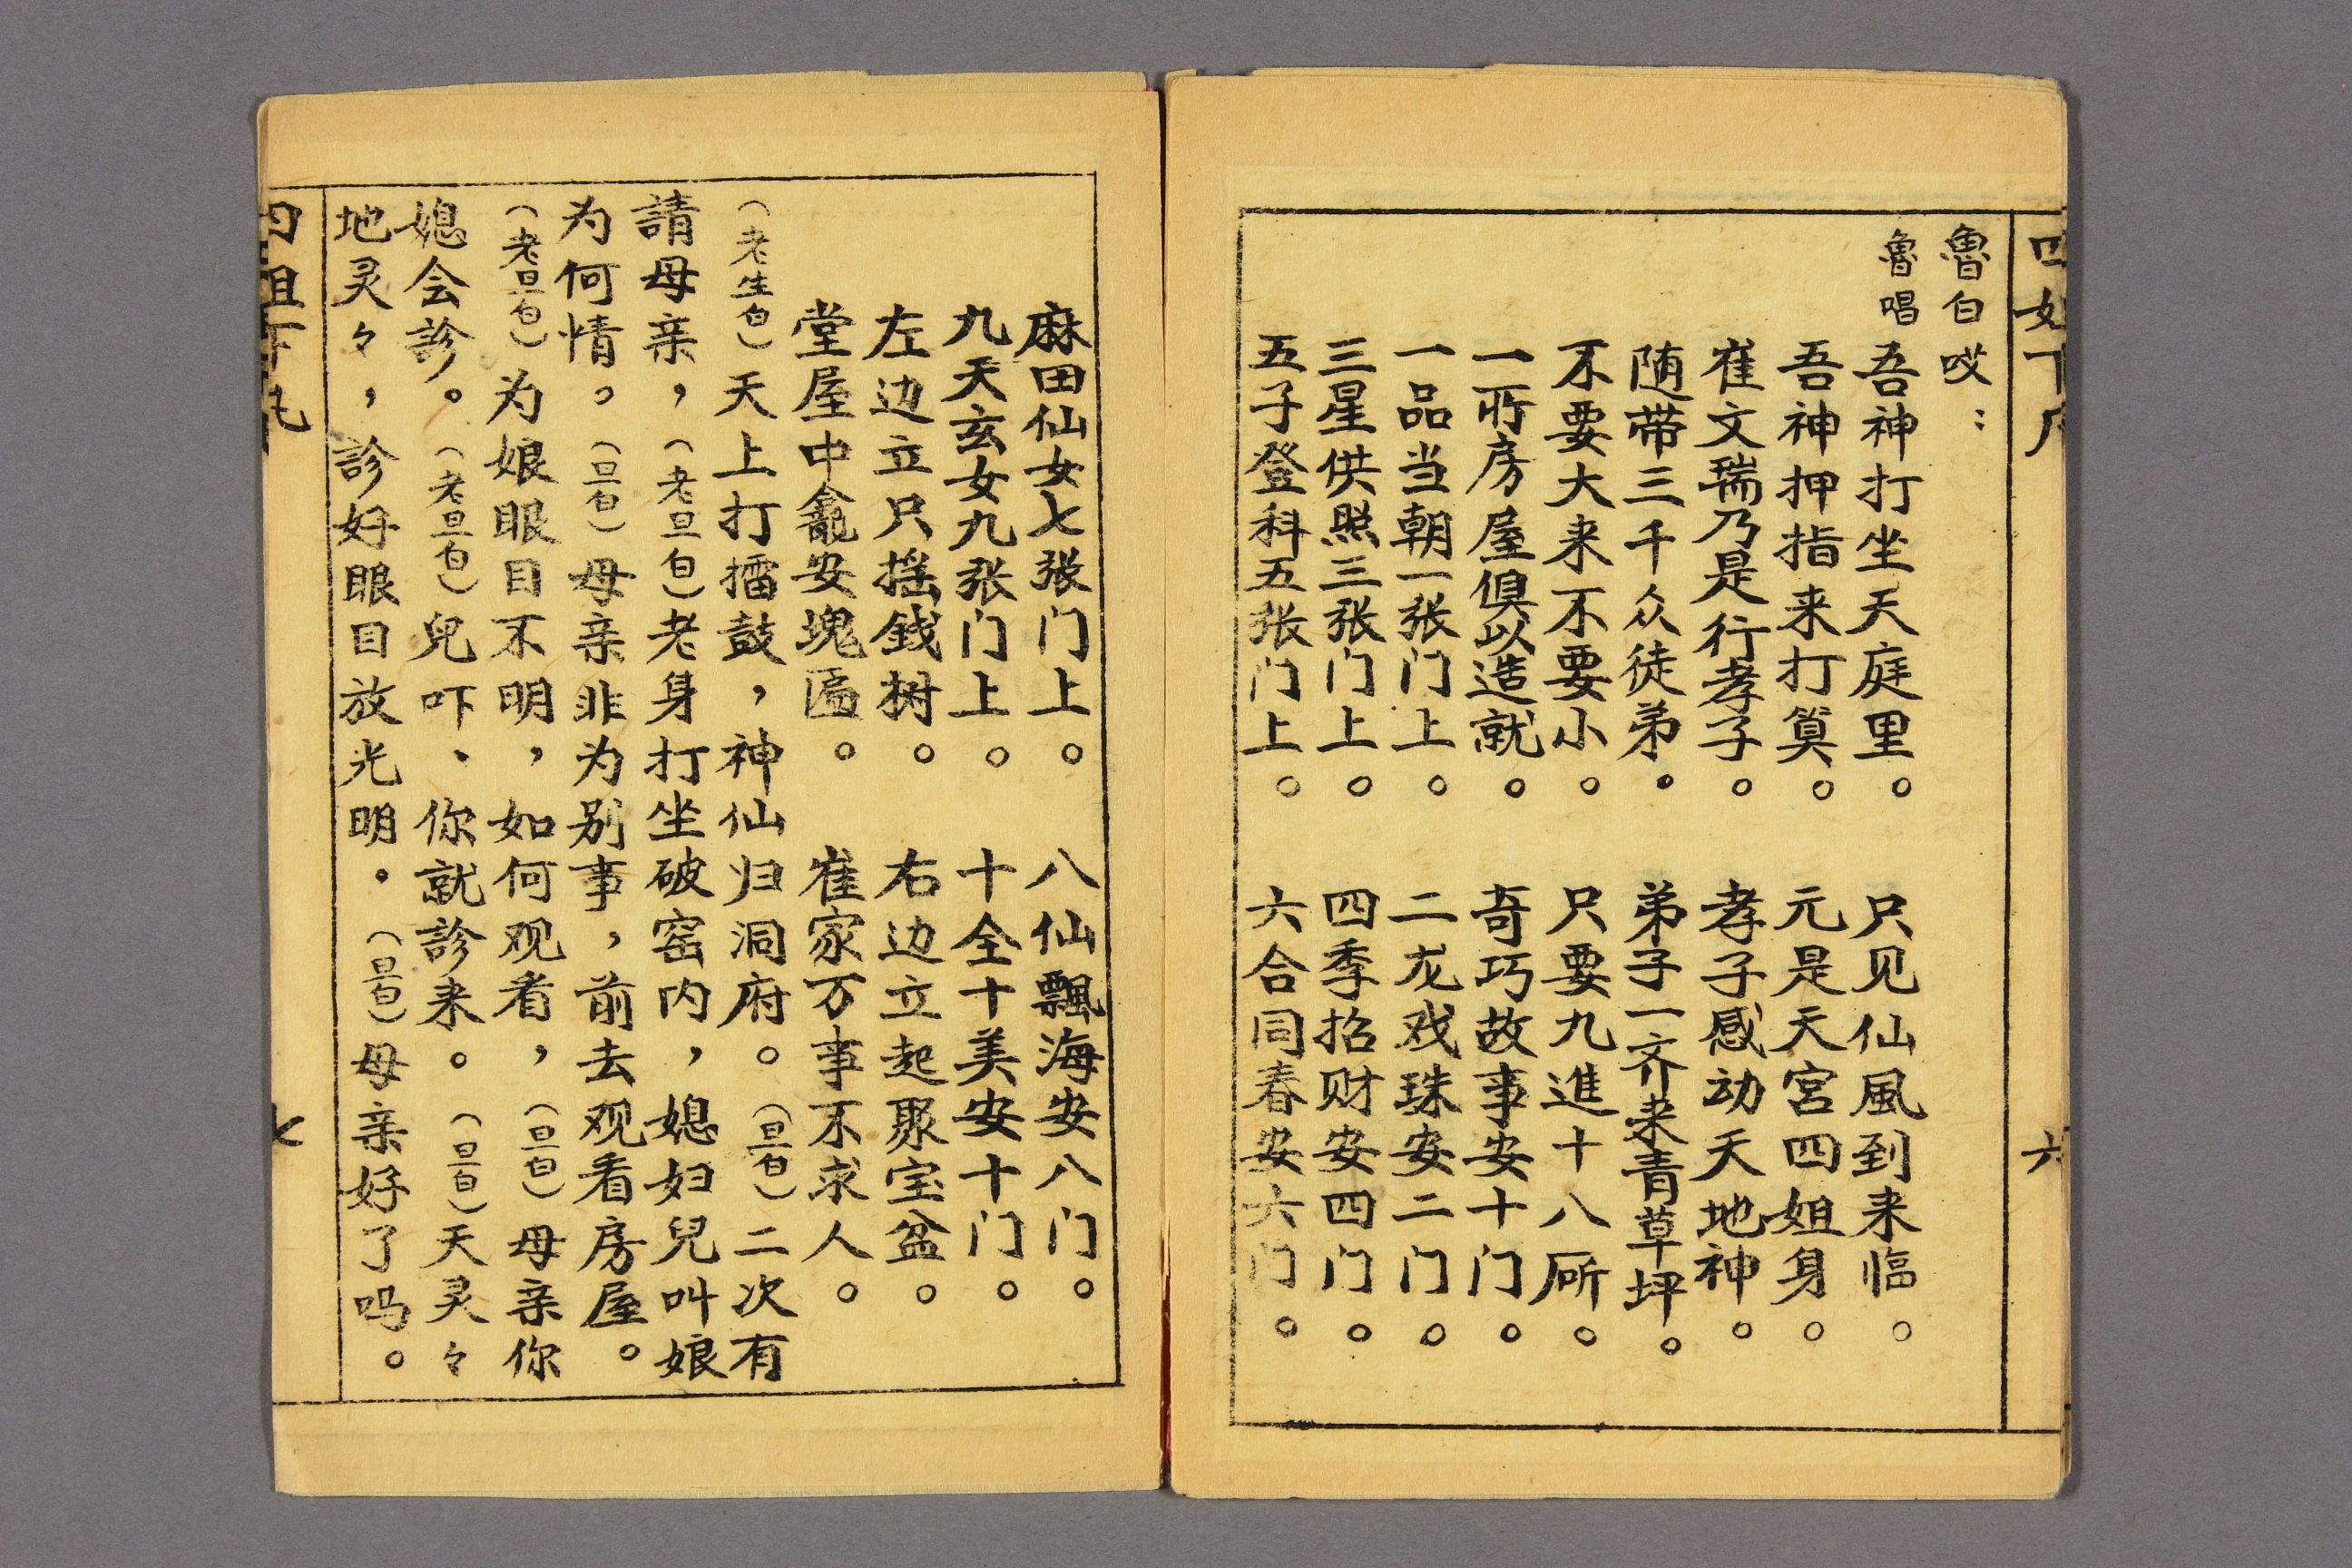 四姐下凡
六
魯白哎：
魯唱 吾神打坐天庭里。 只见仙風到来临。
吾神押指来打算。 元是天宫四姐身。
崔文瑞乃是行孝子。 孝子感动天地神。
随带三千众徒弟。 弟子一齐来青草坪。
不要大来不要小。 只要九進十八厛。
一所房屋俱以造就。 奇巧故事安十门。
一品当朝一张门上。 二龙戏珠安二门。
三星供照三张门上。 四季招财安四门。
五子登科五张门上。 六合同春安六门。
麻田仙女七张门上。 八仙飄海安八门。
九天玄女九张门上。 十全十美安十门。
左边立只摇錢树。 右边立起聚宝盆。
堂屋中龕安塊匾。 崔家万事不求人。
（老生白）天上打擂鼓，神仙归洞府。（旦白）二次有
請母亲，（老旦白）老身打坐破窑内，媳妇兒叫娘
为何情。（旦白）母亲非为别事，前去观看房屋。
（老旦白）为娘眼目不明，如何观看，（旦白）母亲你
媳会診。（老旦白）兒吓、你就診来。（旦白）天灵々
地灵々，診好眼目放光明。（旦白）母亲好了吗。
四姐下凡
七